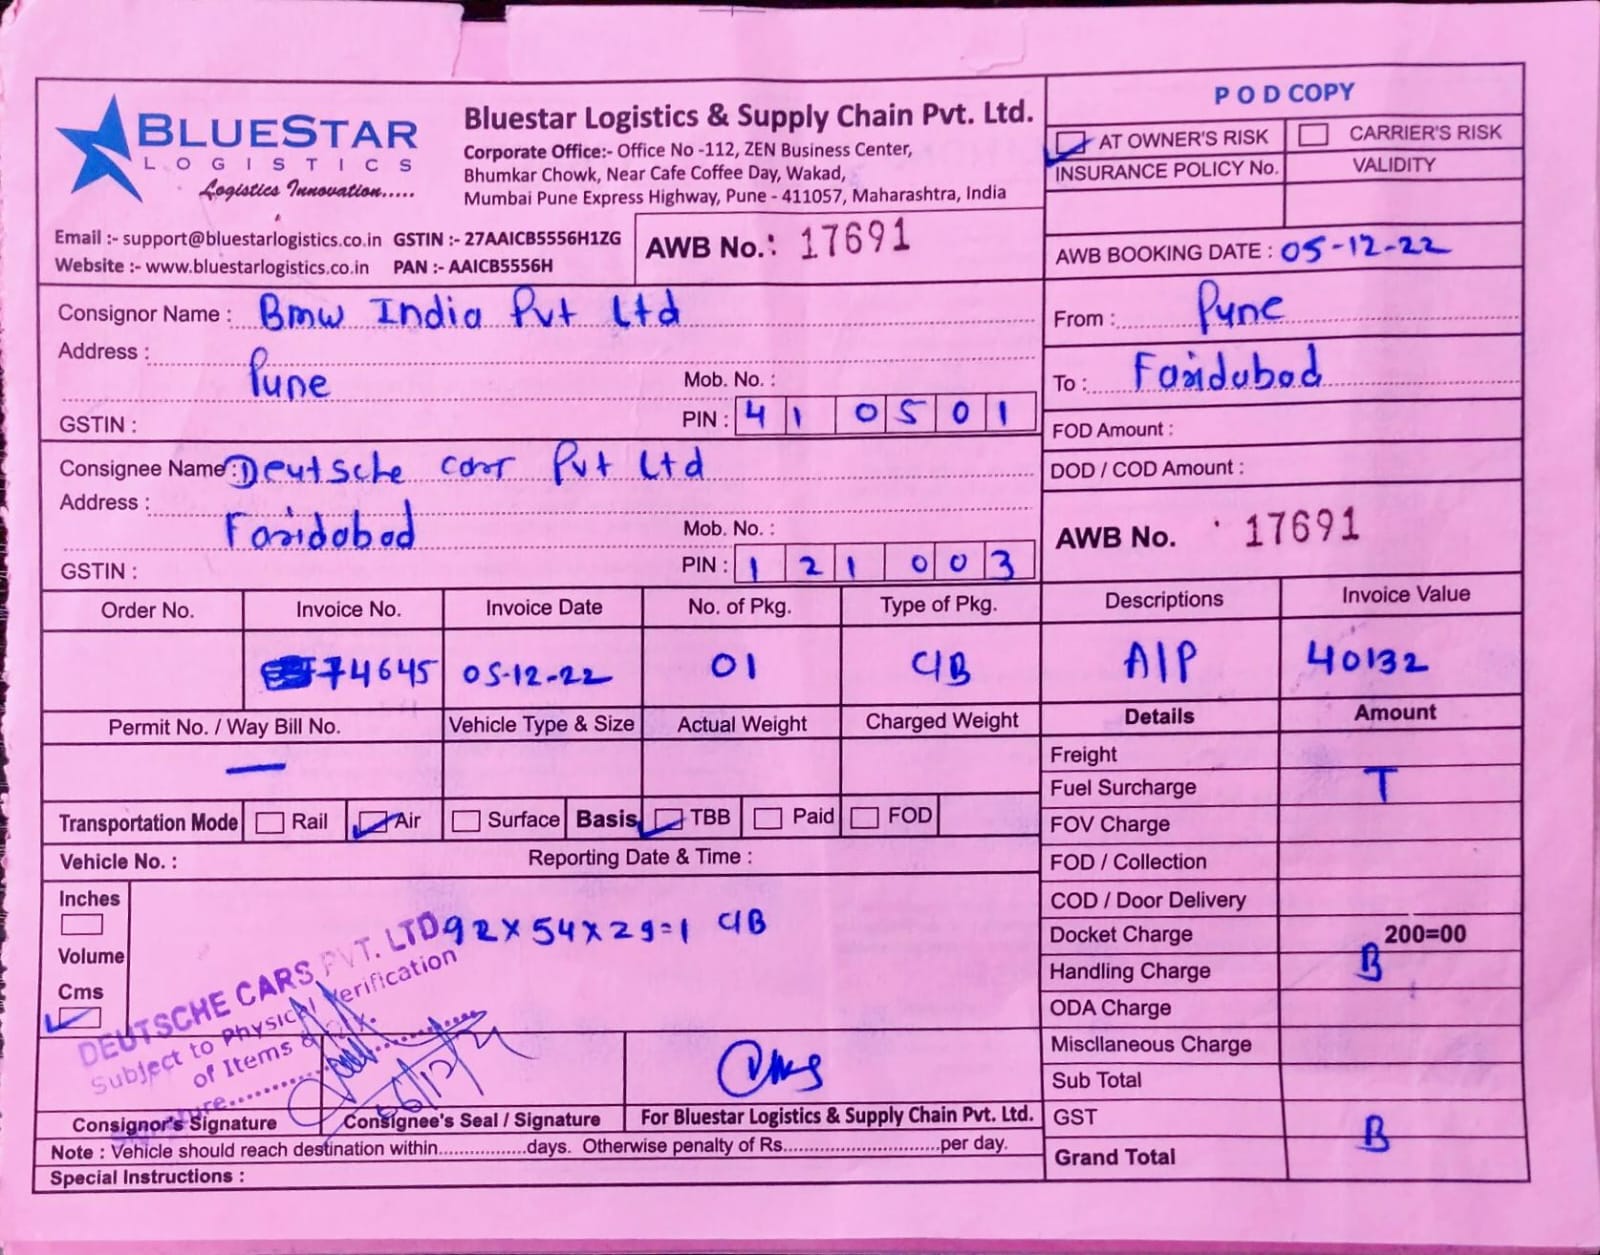 POD COPY
BLUESTAR
LOGISTICS
Logistics Innovation.....
Bluestar Logistics & Supply Chain Pvt. Ltd.
Corporate Office:- Office No -112, ZEN Business Center,
Bhumkar Chowk, Near Cafe Coffee Day, Wakad,
Mumbai Pune Express Highway, Pune - 411057, Maharashtra, India
AT OWNER'S RISK CARRIER'S RISK
INSURANCE POLICY No. VALIDITY
Email :- support@bluestarlogistics.co.in GSTIN :- 27AAICB5556H1ZG
Website :- www.bluestarlogistics.co.in PAN :- AAICB5556H
AWB No.: 17691
AWB BOOKING DATE : 05-12-22
Consignor Name : Bmw India Pvt Ltd
Address :
Pune
Mob. No. :
GSTIN :
PIN : 410501
From : Pune
To : Faridabad
FOD Amount :
DOD / COD Amount :
Consignee Name : Deutsche carr Pvt Ltd
Address :
Faridabad
Mob. No. :
GSTIN :
PIN : 121003
AWB No. 17691
Order No. Invoice No. Invoice Date No. of Pkg. Type of Pkg. Descriptions Invoice Value
74645 05-12-22 01 C/B A/P 40132
Permit No. / Way Bill No. Vehicle Type & Size Actual Weight Charged Weight Details Amount
Freight
Fuel Surcharge T
Transportation Mode Rail Air Surface Basis TBB Paid FOD
FOV Charge
Vehicle No. : Reporting Date & Time :
FOD / Collection
COD / Door Delivery
Docket Charge 200=00
Handling Charge B
ODA Charge
Miscllaneous Charge
Sub Total
GST
B
Grand Total
Inches
Volume
Cms
92 x 54 x 29 = 1 C/B
DEUTSCHE CARS PVT. LTD
Subject to Physical Verification
of Items &
Consignor's Signature Consignee's Seal / Signature For Bluestar Logistics & Supply Chain Pvt. Ltd.
Note : Vehicle should reach destination within................days. Otherwise penalty of Rs.............................per day.
Special Instructions :